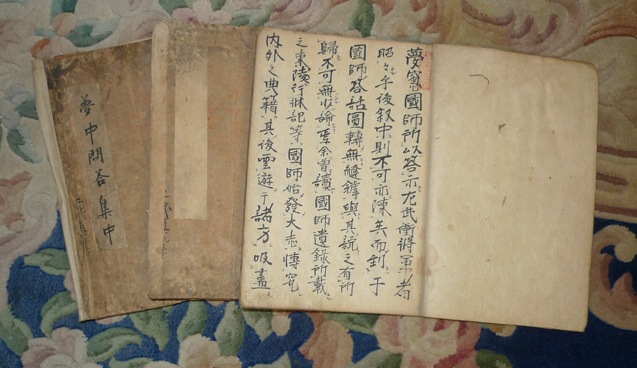 夢窓國師所以答示左武衛將軍者
昭々乎後叙中則不可亦陳矣而到于
國師答話圓轉無縫罅與其統之有所
歸不可無少論焉余嘗讀國師遺録所載
之東陵行狀記等國師始發大志博究
内外之典籍其後雲遊于諸方吸盡
夢中問答集中